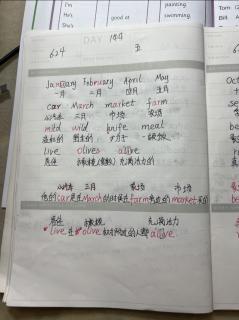 I'm painting.
He's good at swimming.
She's
DAY 184
624 五
January February April May
一月 二月 四月 五月
car March market farm
小汽车 三月 市场 农场
mild wild knife meal
野生的 刀子 一餐饭
live olives alive
居住 橄榄 充满活力的
小汽车 三月 农场 市场
他的car是在March的时候在farm旁边的market买的
居住 橄榄 充满活力
live在olive树附近的人都alive